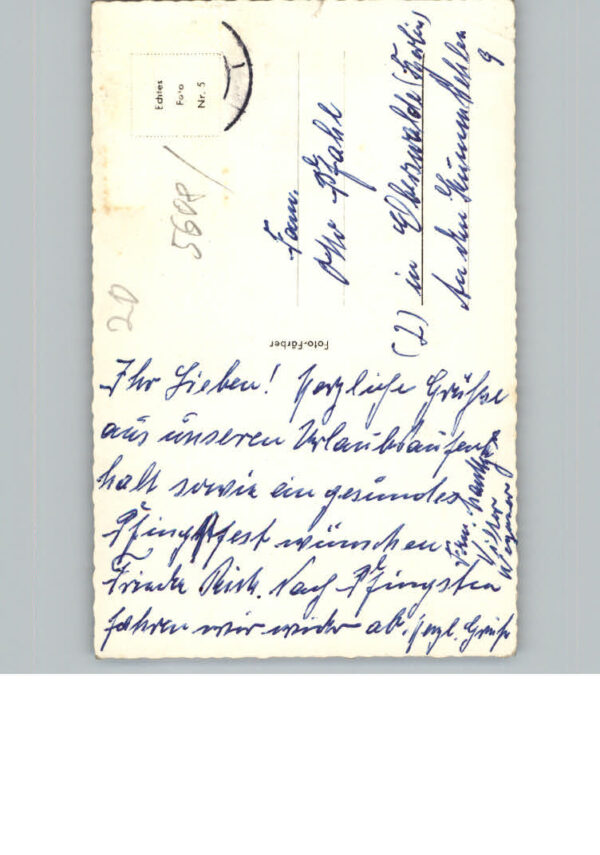 Echtes
Foto
Nr. 5
5688/
20
Fam.
Otto Pfahl
(2) in Eberswalde (Berlin)
An den
9
Foto-Färber
Ihr Lieben! Herzliche Grüße
aus unseren Urlaubsaufent
halt sowie ein gesundes
Pfingstfest wünschen
Nach Pfingsten
fahren wir wieder ab. Herzl. Grüße
Fam.